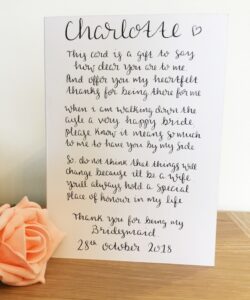 Charlotte
This card is a gift to say
how dear you are to me
And offer you my heartfelt
thanks for being there for me
When I am walking down the
aisle a very happy bride
please know it means so much
to me to have you by my side
So do not think that things will
change because i'll be a wife
you'll always hold a special
place of honour in my life
Thank you for being my
Bridesmaid
28th October 2018